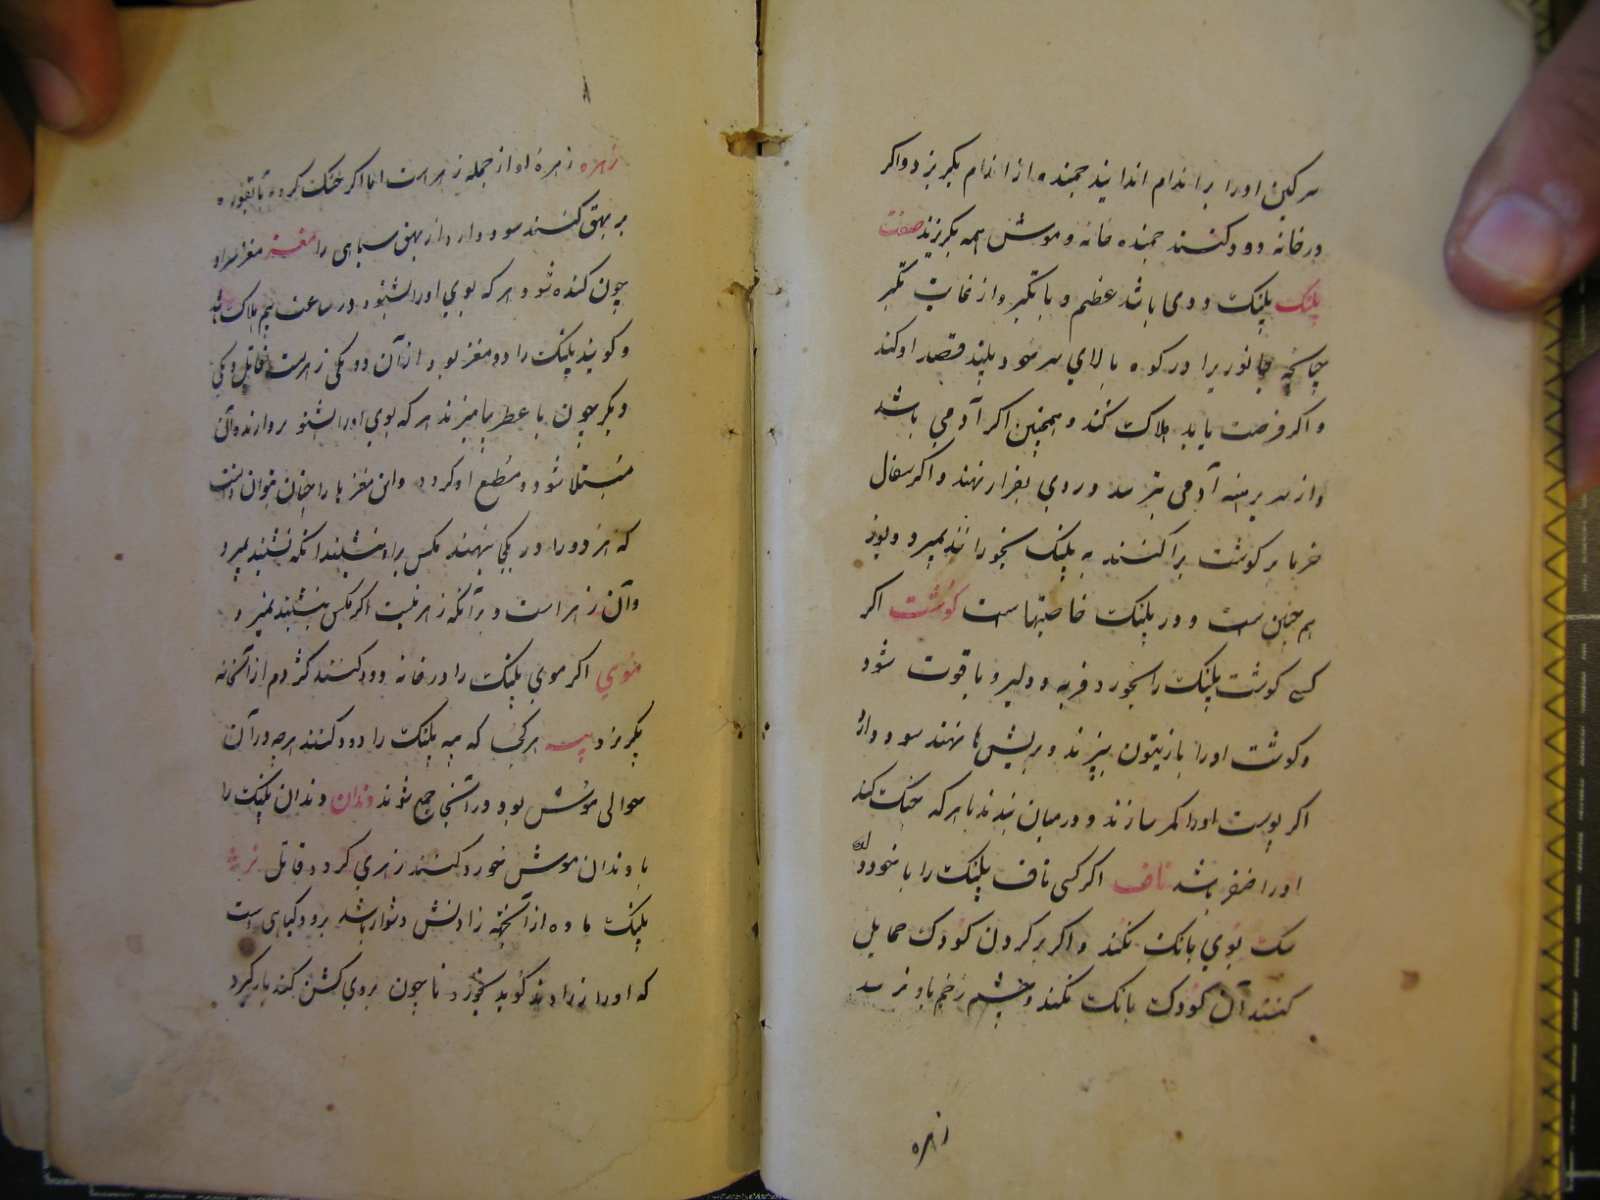 سرکین اورا بر اندام اندایند جمنده از اندام بکریزد و اکر
در خانه دود کنند جمنده خانه و موش همه بکریزند صفت
پلنک پلنک ددی باشد عظیم و با تکبر و از غایت تکبر
چنانچه جانوریرا در کوه بالای سر خود بیند قصد او کند
و اکر فرصت یابد هلاک کند و همچنین اکر آدمی باشد
و از سر برهنه آدمی بترسد و روی بفرار نهد و اکر
خرما بر کوشت پراکنند به پلنک بخورانند بمیرد و یوز
هم چنین است و در پلنک خاصیتها است کوشت اکر
کسی کوشت پلنک را بخورد فربه و دلیر و با قوت شود
و کوشت اورا با زیتون بپزند و بر ریش ها نهند سود دارد
اکر پوست اورا کمر سازند و در میان بندند با هر که جنک کند
اورا ظفر باشد ناف اکر کسی ناف پلنک را با خود دارد
سک بوی بانک نکند و اکر بر کردن کودک حمایل
کنند آن کودک بانک نکند و چشم زخم باو نرسد
زهره
زهره زهرهٔ او از جمله زهر است اما اکر خشک کرده
بر بهق کنند سود دارد از بهق سیاهی را مغز مغز سر او
چون کنده شود هر که بوی اورا بشنود در ساعت هلاک شد
و کویند پلنک را دو مغز بود از آن دو یکی زهر است قاتل و یکی
دیکر چون با عطر بیامیزند هر که بوی اورا بشنود
مبتلا شود و مطیع او کردد و این مغز ها را چنان توان دانست
که هر دو را در یکجا بنهند مکس بر او نشیند آنکه نشیند بمیرد
و آن زهر است و بر آنکه زهر نیست اکر مکس بنشیند نمیرد
موی اکر موی پلنک را در خانه دود کنند کژدم از آنخانه
بکریزد پیه هر کجا که پیه پلنک را دود کنند هرچه در آن
حوالی موش بود در آنجا جمع شوند دندان دندان پلنک را
با دندان موش خورد کنند زهری کردد قاتل
پلنک ماده از آنجهة زادنش دشوار باشد برود کیاهی است
که اورا کویند بخورد تا چون بروی کشن کند بار کیرد